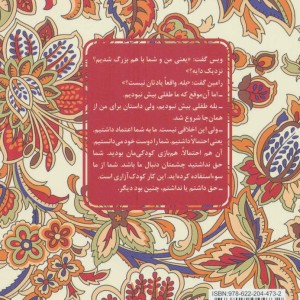 ویس گفت: «یعنی من و شما با هم بزرگ شدیم؟
نزدیک دایه؟»
رامین گفت: «بله. واقعاً یادتان نیست؟»
ـ اما آن‌موقع که ما طفلی بیش نبودیم.
ـ بله طفلی بیش نبودیم، ولی داستان برای من از
همان‌جا شروع شد.
ـ ولی این اخلاقی نیست. ما به شما اعتماد داشتیم.
یعنی احتمالاً داشتیم. شما را دوست خود می‌دانستیم.
آن هم احتمالاً. هم‌بازی کودکی‌مان بودید. شما
حق نداشتید چشمتان دنبال ما باشد. از ما
سوءاستفاده کرده‌اید. این کار کودک آزاری است.
ـ حق داشتم یا نداشتم، چنین بود دیگر.
ISBN: 978-622-204-473-2